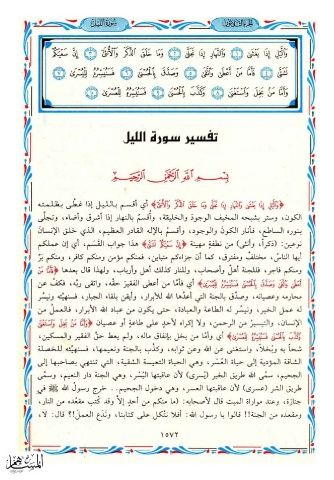 سورة الليل
وَالَّيْلِ إِذَا يَغْشَىٰ ١ وَالنَّهَارِ إِذَا تَجَلَّىٰ ٢ وَمَا خَلَقَ الذَّكَرَ وَالْأُنثَىٰ ٣ إِنَّ سَعْيَكُمْ
لَشَتَّىٰ ٤ فَأَمَّا مَنْ أَعْطَىٰ وَاتَّقَىٰ ٥ وَصَدَّقَ بِالْحُسْنَىٰ ٦ فَسَنُيَسِّرُهُ لِلْيُسْرَىٰ ٧
وَأَمَّا مَن بَخِلَ وَاسْتَغْنَىٰ ٨ وَكَذَّبَ بِالْحُسْنَىٰ ٩ فَسَنُيَسِّرُهُ لِلْعُسْرَىٰ ١٠
تفسير سورة الليل
بسم الله الرحمن الرحيم
﴿وَالَّيْلِ إِذَا يَغْشَىٰ وَالنَّهَارِ إِذَا تَجَلَّىٰ وَمَا خَلَقَ الذَّكَرَ وَالْأُنثَىٰ﴾ أي أقسم بالليل إذا غطَّى بظلمته
الكون، وستر بشبحه المخيف الوجود والخليقة، وأقسم بالنهار إذا أشرق وأضاء، وتجلَّى
بنوره الساطع، فأنار الكون والوجود، وأقسم بالإله القادر العظيم، الذي خلق الإنسان
نوعين: (ذكراً، وأنثى) من نطفةٍ مهينة ﴿إِنَّ سَعْيَكُمْ لَشَتَّىٰ﴾ هذا جواب القسم، أي إن عملكم
أيها الناسُ، مختلفٌ ومفترق، كما أن جزاءكم متباين، فمنكم مؤمن ومنكم كافر، ومنكم برٌّ
ومنكم فاجر، فللجنة أهلٌ وأصحاب، وللنار كذلك أهل وأرباب، ولهذا قال بعدها ﴿فَأَمَّا مَنْ
أي فأما من أعطى الفقيرَ حقَّه، واتقى ربَّه، فكفَّ عن
محارمه وعصيانه، وصدَّق بالجنة التي أعدَّها الله للأبرار، وأيقن بلقاء الجبار، فسنهيئه ونيسر
له عمل الخير، ونيسر له الطاعة والعبادة، حتى يكون من عباد الله الأبرار، فالعملُ من
الإنسان، والتيسيرُ من الرحمن، ولا إكراه لأحدٍ على طاعةٍ أو عصيان ﴿وَأَمَّا مَنْ بَخِلَ وَاسْتَغْنَىٰ
وَكَذَّبَ بِالْحُسْنَىٰ فَسَنُيَسِّرُهُ لِلْعُسْرَىٰ﴾ أي وأمَّا من بخل بإنفاق ماله، ولم يعط حقَّ الفقير والمسكين،
شحاً به وبخلاً، واستغنى عن الله وعن ثوابه، وكذَّب بالجنة ونعيمها، فسنهيئه للخصلة
الشاقة المؤدية إلى حياة العُسْر، وهي الحياة التعيسة الشقية، التي تنتهي بصاحبها إلى
الجحيم، سمَّى الله طريق الخير (يُسرى) لأن عاقبتها اليُسْر، وهي الجنة دار النعيم، وسمَّى
طريق الشر (عسرى) لأن عاقبتها العسر، وهي دخول الجحيم.. خرج رسولُ الله ﷺ في
جنازة، وعند مواراة الميت قال لأصحابه: (ما منكم من أحدٍ إلاَّ وقد كُتب مقعدُه من النار،
ومقعده من الجنة!! قالوا يا رسول الله: أفلا نتكل على كتابنا، وندَع العمل؟! قال: لا،
١٥٧٢